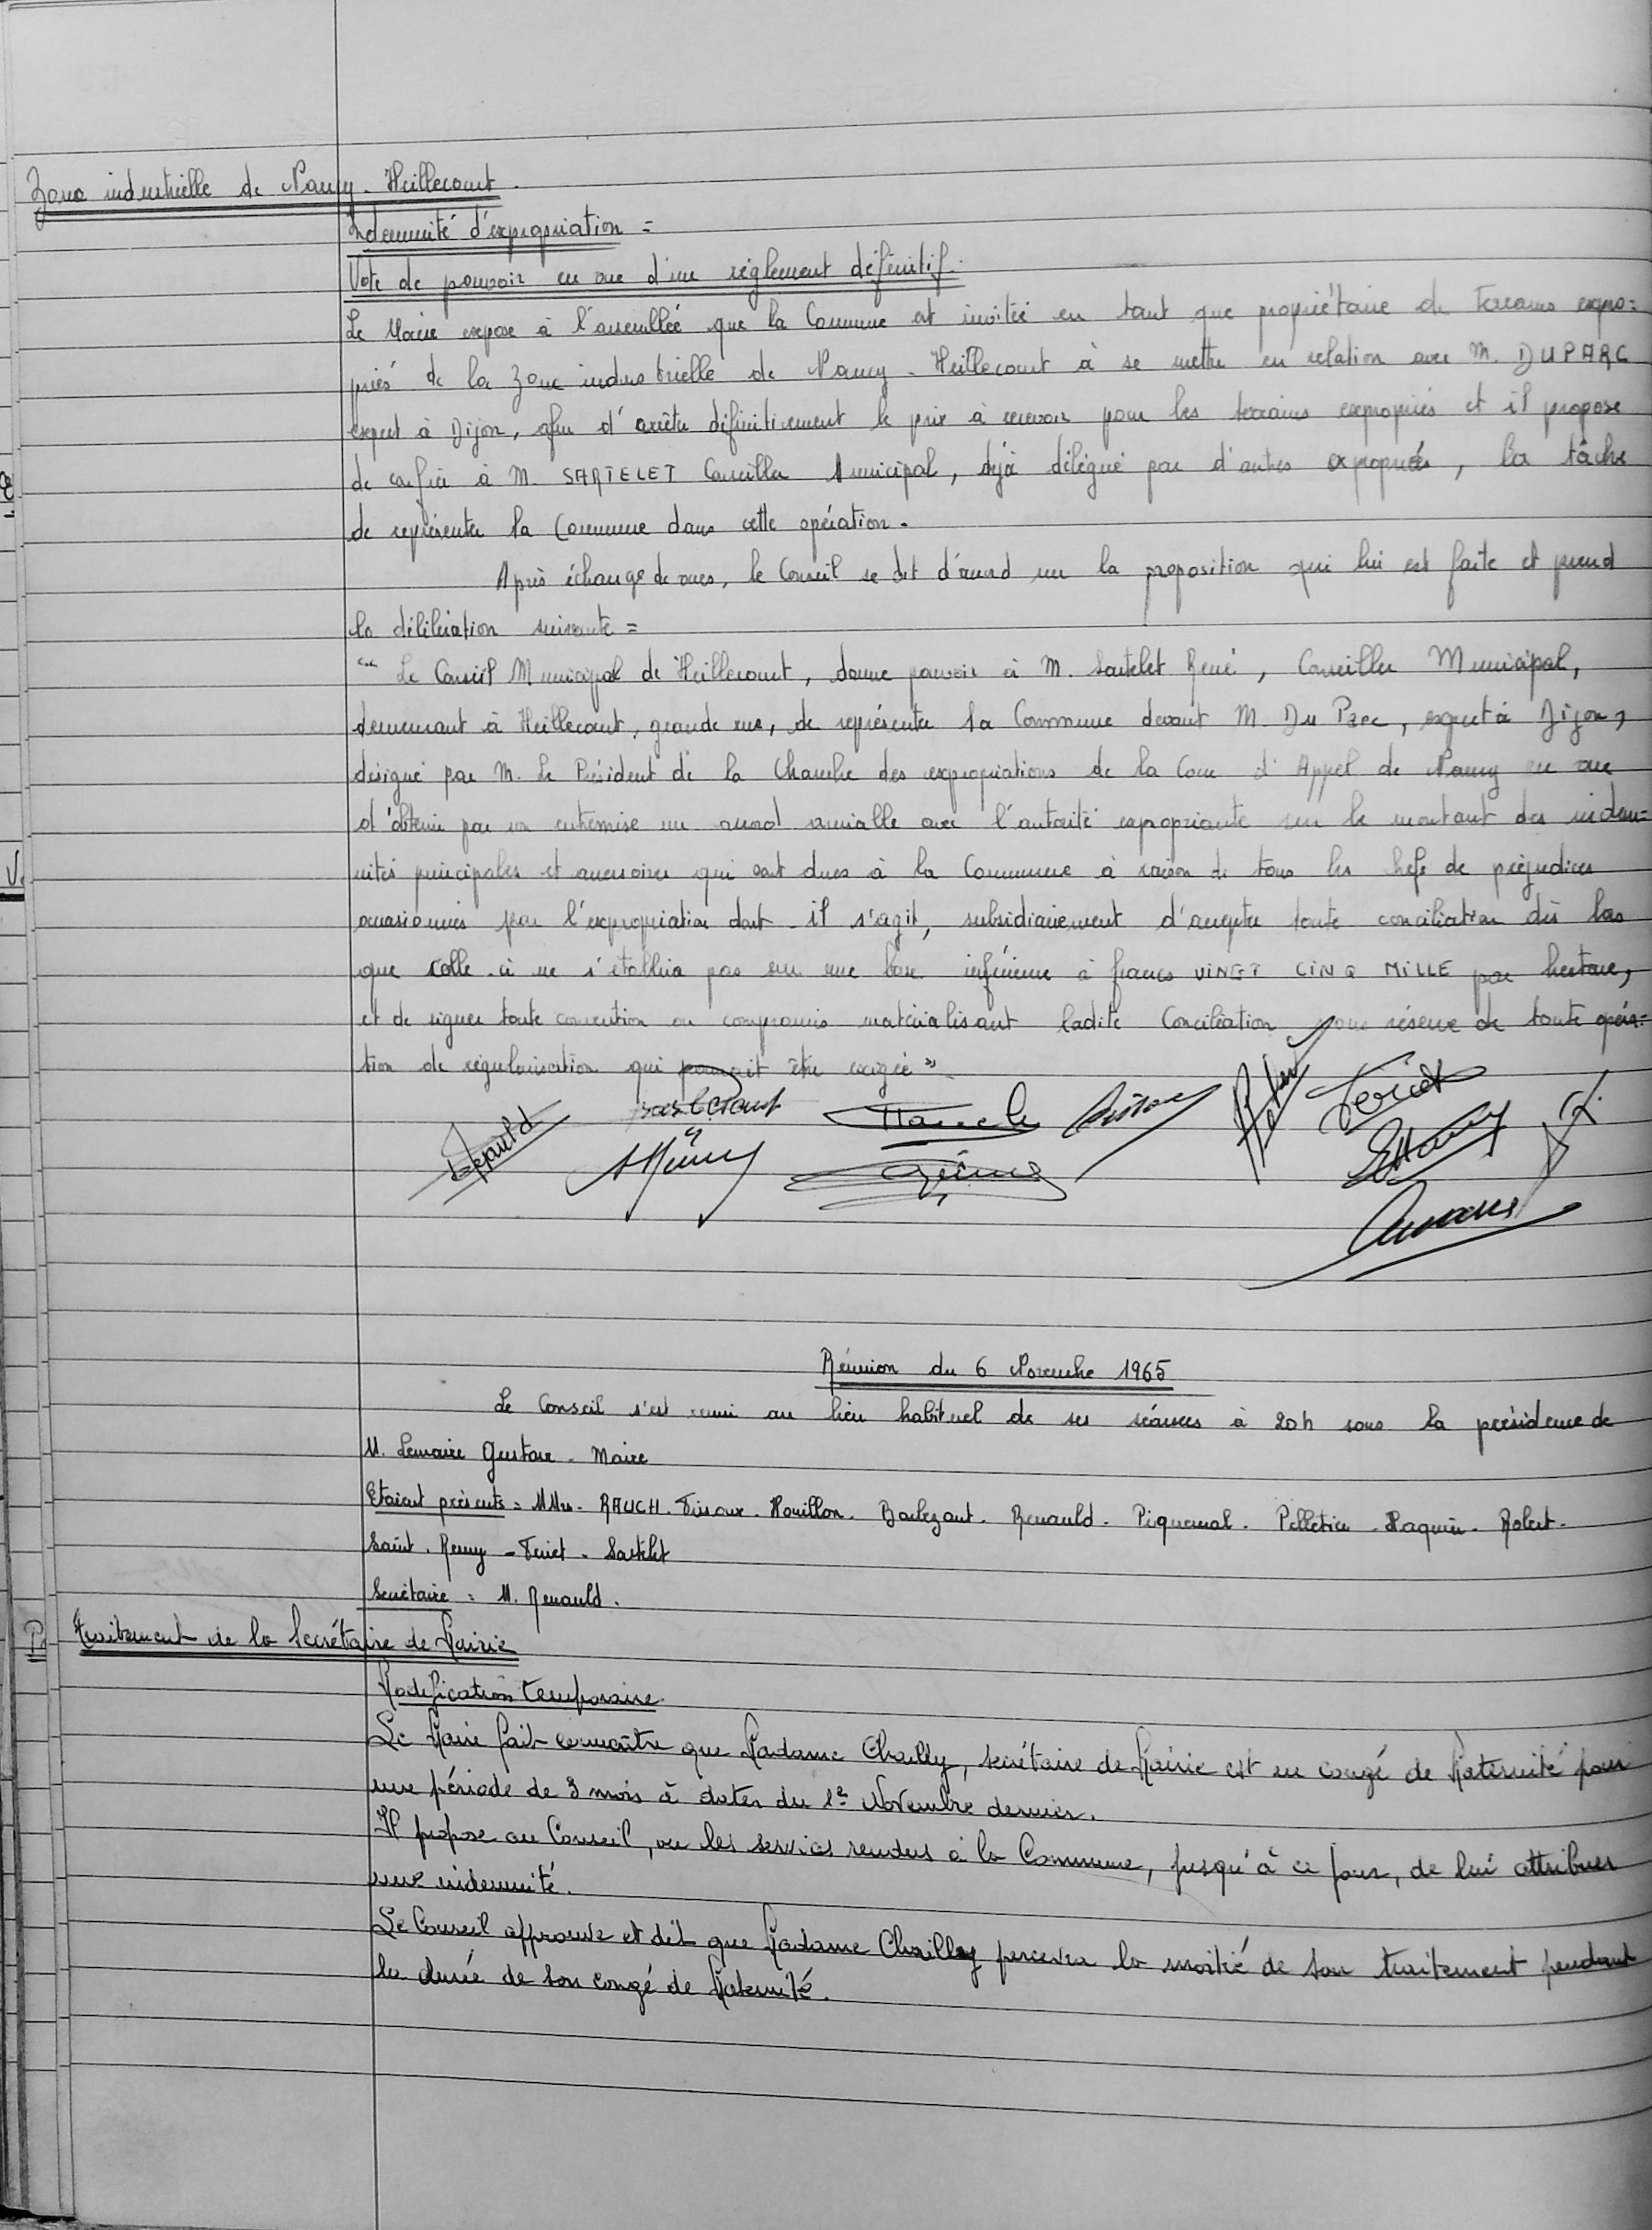 Zone industrielle de Nancy - Heillecourt.
Indemnité d'expropriation =
Vote de pouvoir en vue d'un règlement définitif.
Le Maire expose à l'assemblée que la Commune est invitée en tant que propriétaire de terrains expro=
priés de la zone industrielle de Nancy - Heillecourt à se mettre en relation avec M. DUPARC
expert à Dijon, afin d'arrêter définitivement le prix à recevoir pour les terrains expropriés et il propose
de confier à M. SARTELET Conseiller Municipal, déjà délégué par d'autres expropriés, la tâche
de représenter la Commune dans cette opération.
Après échange de vues, le Conseil se dit d'accord sur la proposition qui lui est faite et prend
la délibération suivante =
"Le Conseil Municipal de Heillecourt, donne pouvoir à M. Sartelet René, Conseiller Municipal,
demeurant à Heillecourt, grande rue, de représenter la Commune devant M. Du Parc, expert à Dijon,
désigné par M. Le Président de la Chambre des expropriations de la Cour d'Appel de Nancy en vue
d'obtenir par son entremise un accord amiable avec l'autorité expropriante sur le montant des indem=
nités principales et accessoires qui sont dues à la Commune à raison de tous les chefs de préjudices
occasionnés par l'expropriation dont - il s'agit, subsidiairement d'accepter toute conciliation dès lors
que celle-ci ne s'établira pas sur une base inférieure à francs VINGT CINQ MILLE par hectare,
et de signer toute convention ou compromis matérialisant ladite Conciliation sous réserve de toute opéra=
tion de régularisation qui pourrait être exigée"
Réunion du 6 Novembre 1965
Le Conseil s'est réuni au lieu habituel de ses séances à 20h sous la présidence de
M. Lemaire Gustave - Maire
Etaient présents = MMrs - RAUCH - Houillon - Barbezant - Renauld - Piquemal - Pelletier - Haquin - Robert -
Saint . Remy - Teriet - Sartelet
Secrétaire = M. Renauld.
Traitement de la Secrétaire de Mairie
Modification temporaire.
Le Maire fait connaître que Madame Chailly, secrétaire de Mairie est en congé de Maternité pour
une période de 3 mois à dater du 1er Novembre dernier.
Il propose au Conseil, vu les services rendus à la Commune, jusqu'à ce jour, de lui attribuer
une indemnité.
Le Conseil approuve et dit que Madame Chailley percevra la moitié de son traitement pendant
la durée de son congé de Maternité.